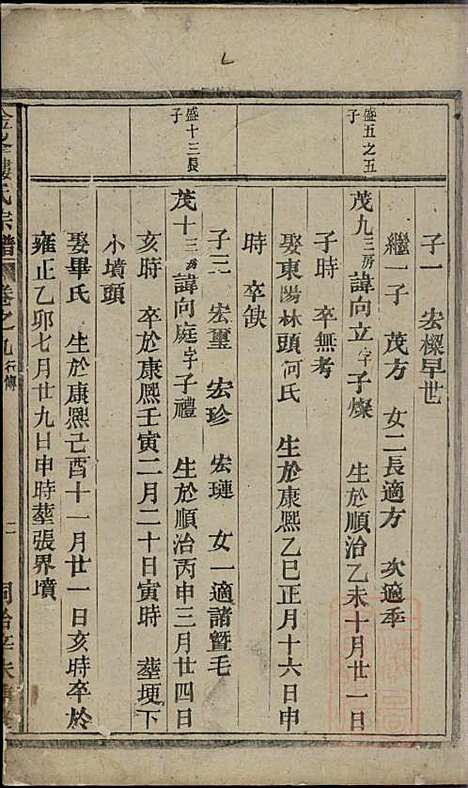 子一　宏檪早世
繼一子　茂方　女二長適方　次適季
盛五之五子
茂九三房諱向立字子燦　生於順治乙未十月廿一日
子時　卒無考
娶東陽林頭何氏　生於康熙乙巳正月十六日申
時　卒缺
子三　宏璽　宏珍　宏璉　女一適諸暨毛
盛十三長子
茂十三房諱向庭字子禮　生於順治丙申三月廿四日
亥時　卒於康熙壬寅二月二十日寅時　塟埂下
小墳頭
娶畢氏　生於康熙己酉十一月廿一日亥時卒於
雍正乙卯七月廿九日申時塟張界墳
樓氏宗譜　卷之九行傳　二　同治辛未